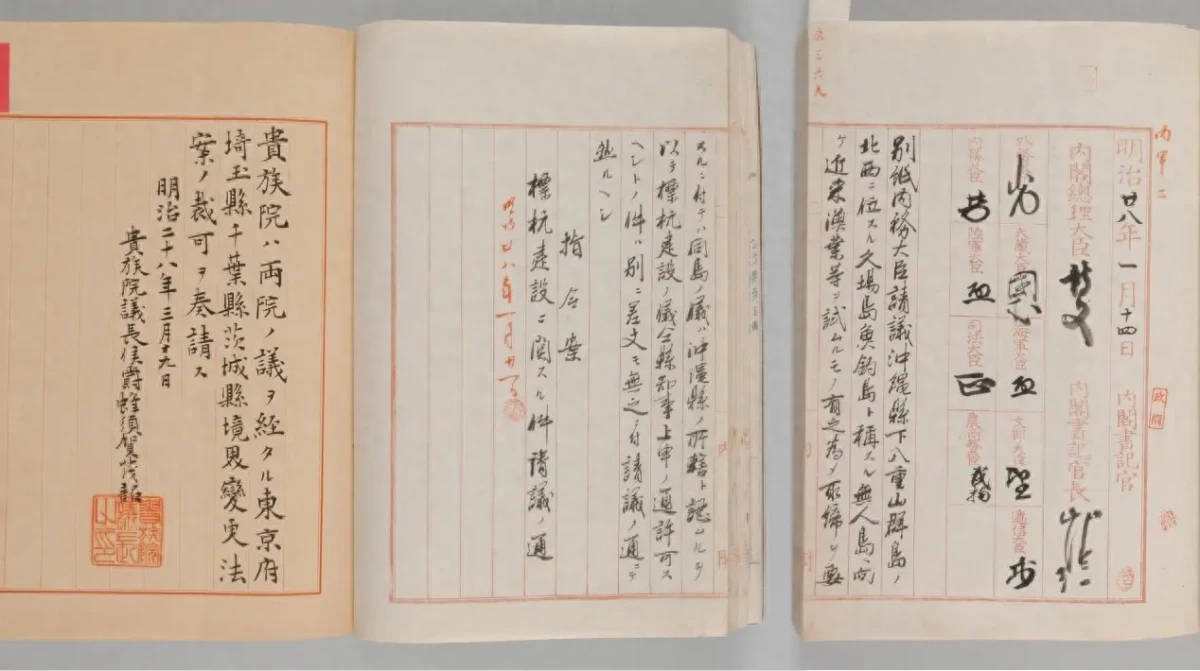 内甲二
明治廿八年一月十四日 内閣書記官
内閣總理大臣 内閣書記官長
外務大臣 大藏大臣 海軍大臣 文部大臣 遞信大臣
内務大臣 陸軍大臣 司法大臣 農商務大臣
別紙内務大臣請議沖縄縣下八重山群島ノ
北西ニ位スル久場島魚釣島ト稱スル無人島ヘ向
ケ近来漁業等ヲ試ムルモノ有之為メ取締ヲ要
スルニ付テハ同島ノ儀ハ沖縄縣ノ所轄ト認ムルヲ
以テ標杭建設ノ儀仝縣知事上申ノ通許可ス
ヘシトノ件ハ別ニ差支モ無之ニ付請議ノ通ニテ
然ルヘシ
指令案
標杭建設ニ関スル件請議ノ通
明治廿八年一月廿一日
貴族院ハ両院ノ議ヲ経タル東京府
埼玉縣千葉縣茨城縣境界變更法
案ノ裁可ヲ奏請ス
明治二十八年三月十九日
貴族院議長侯爵蜂須賀茂韶